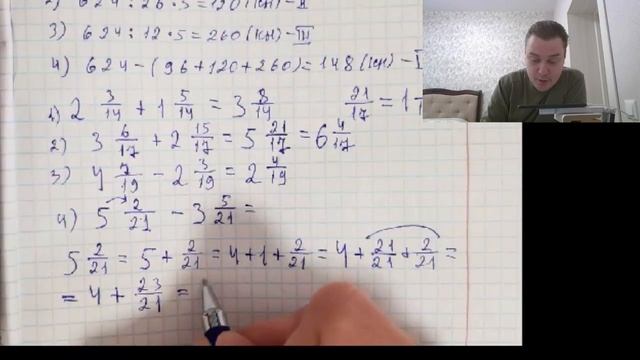 2) 624 : 26 · 5 = 120 (кн) - II
3) 624 : 12 · 5 = 260 (кн) - III
4) 624 - (96 + 120 + 260) = 148 (кн) - I
1) 2 3/14 + 1 5/14 = 3 8/14
21/17 = 1
2) 3 6/17 + 2 15/17 = 5 21/17 = 6 4/17
3) 4 7/19 - 2 3/19 = 2 4/19
4) 5 2/21 - 3 5/21 =
5 2/21 = 5 + 2/21 = 4 + 1 + 2/21 = 4 + 21/21 + 2/21 =
= 4 + 23/21 =